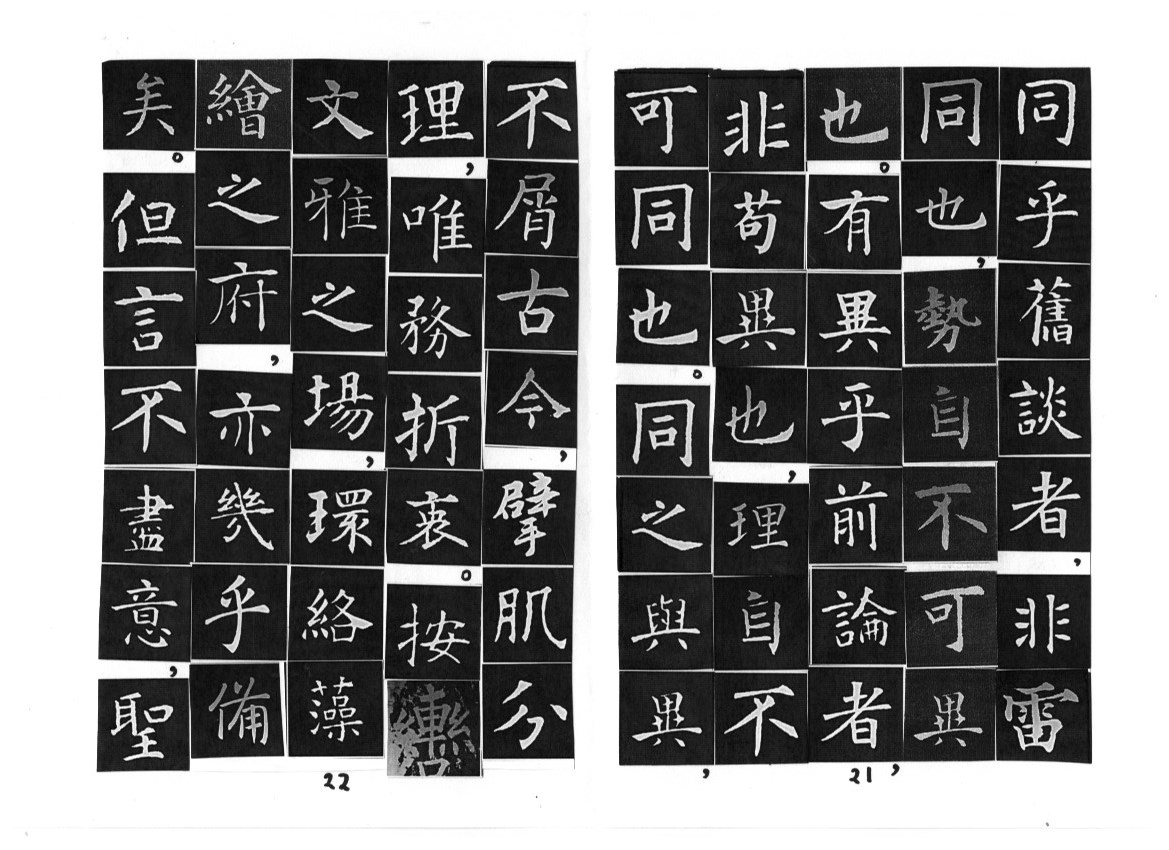 同乎舊談者,非雷
同也,勢自不可異
也。有異乎前論者,
非苟異也,理自不
可同也。同之與異,
21
不屑古今,擘肌分
理,唯務折衷。按轡
文雅之場,環絡藻
繪之府,亦幾乎備
矣。但言不盡意,聖
22